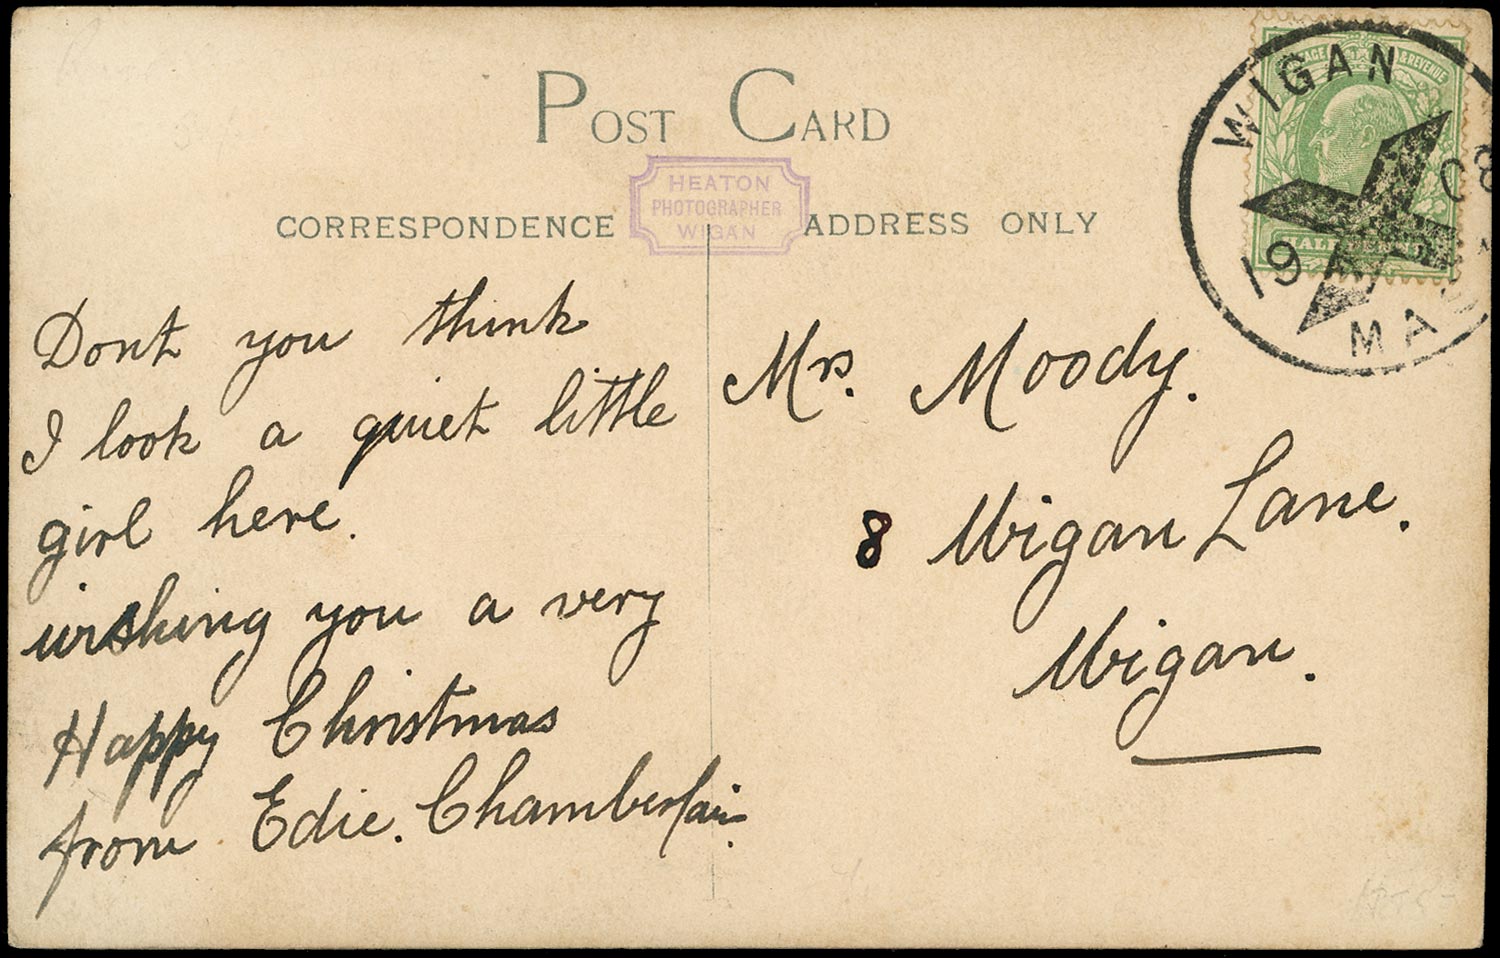 POST CARD
HEATON
PHOTOGRAPHER
WIGAN
CORRESPONDENCE
ADDRESS ONLY
Dont you think
I look a quiet little
girl here.
wishing you a very
Happy Christmas
from Edie. Chamberlain.
Mrs. Moody.
8 Wigan Lane.
Wigan.
WIGAN
19
MA
& REVENUE